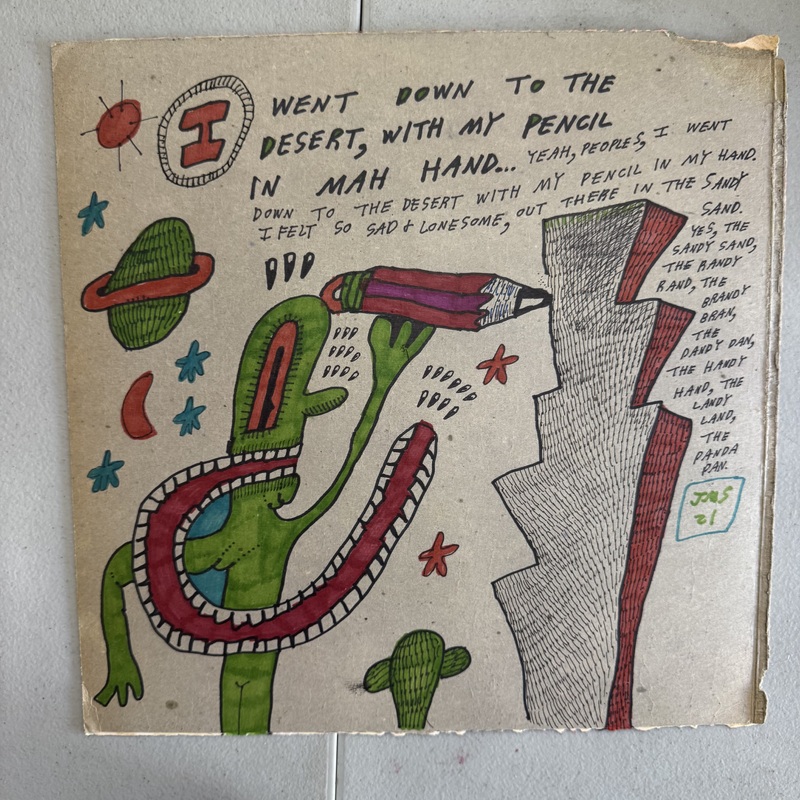 I WENT DOWN TO THE
DESERT, WITH MY PENCIL
IN MAH HAND... YEAH, PEOPLES, I WENT
DOWN TO THE DESERT WITH MY PENCIL IN MY HAND.
I FELT SO SAD & LONESOME, OUT THERE IN THE SANDY
SAND.
YES, THE
SANDY SAND,
THE RANDY
RAND, THE
BRANDY
BRAN,
THE
DANDY DAN,
THE HANDY
HAND, THE
LANDY
LAND,
THE
PANDA
PAN.
21